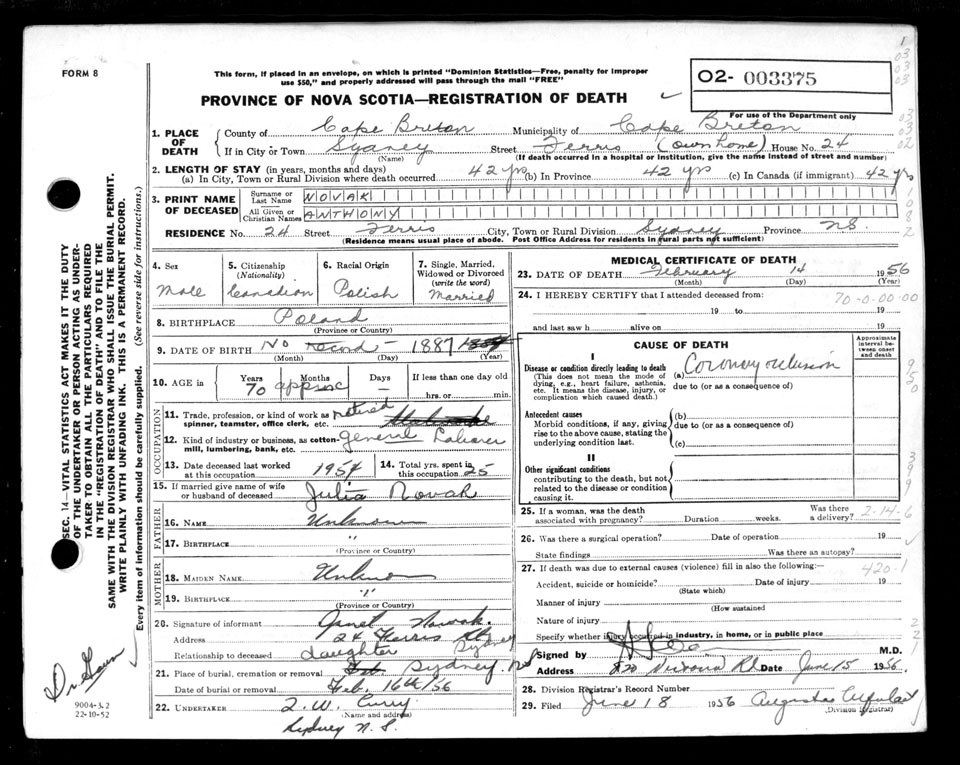 FORM 8
This form, if placed in an envelope, on which is printed "Dominion Statistics—Free, penalty for improper
use $50," and properly addressed will pass through the mail "FREE"
02- 003375
For use of the Department only
PROVINCE OF NOVA SCOTIA—REGISTRATION OF DEATH
1. PLACE OF DEATH
County of Cape Breton Municipality of Cape Breton
If in City or Town Sydney Street Ferris (own home) House No. 24
(Name) (If death occurred in a hospital or institution, give the name instead of street and number)
2. LENGTH OF STAY (in years, months and days)
(a) In City, Town or Rural Division where death occurred 42 yrs (b) In Province 42 yrs (c) In Canada (if immigrant) 42 yrs
3. PRINT NAME OF DECEASED
Surname or Last Name NOVAK
All Given or Christian Names ANTHONY
RESIDENCE No. 24 Street Ferris City, Town or Rural Division Sydney Province N.S.
(Residence means usual place of abode. Post Office Address for residents in rural parts not sufficient)
4. Sex
Male
5. Citizenship
(Nationality)
Canadian
6. Racial Origin
Polish
7. Single, Married, Widowed or Divorced
(write the word)
Married
8. BIRTHPLACE Poland
(Province or Country)
9. DATE OF BIRTH No record - 1887
(Month) (Day) (Year)
10. AGE in
Years Months Days If less than one day old
70 approx — hrs. or min.
OCCUPATION
11. Trade, profession, or kind of work as retired
spinner, teamster, office clerk, etc.
12. Kind of industry or business, as cotton- general Laborer
mill, lumbering, bank, etc.
13. Date deceased last worked at this occupation 1954
14. Total yrs. spent in this occupation 25
15. If married give name of wife or husband of deceased Julia Novak
FATHER
16. NAME Unknown
17. BIRTHPLACE "
(Province or Country)
MOTHER
18. MAIDEN NAME Unknown
19. BIRTHPLACE "
(Province or Country)
20. Signature of informant Janet Nowak.
Address 24 Ferris St Sydney
Relationship to deceased daughter
21. Place of burial, cremation or removal Sydney. N.S
Date of burial or removal Feb. 16th/56
22. UNDERTAKER J. W. Curry
(Name and address)
Sydney N. S.
MEDICAL CERTIFICATE OF DEATH
23. DATE OF DEATH February 14 1956
(Month) (Day) (Year)
24. I HEREBY CERTIFY that I attended deceased from:
70-0-00-00
19 to 19
and last saw h alive on 19
CAUSE OF DEATH
Approximate interval between onset and death
I
Disease or condition directly leading to death
(This does not mean the mode of dying, e.g., heart failure, asthenia, etc. It means the disease, injury, or complication which caused death.)
(a) Coronary occlusion
due to (or as a consequence of)
Antecedent causes
Morbid conditions, if any, giving rise to the above cause, stating the underlying condition last.
(b)
due to (or as a consequence of)
(c)
II
Other significant conditions
contributing to the death, but not related to the disease or condition causing it.
25. If a woman, was the death associated with pregnancy? Duration weeks. Was there a delivery? 2-14-6
26. Was there a surgical operation? Date of operation 19
State findings Was there an autopsy?
27. If death was due to external causes (violence) fill in also the following:—
420.1
Accident, suicide or homicide? Date of injury 19
(State which)
Manner of injury
(How sustained)
Nature of injury
Specify whether injury occurred in industry, in home, or in public place
Signed by M.D.
Address Rd Date June 15 1956.
28. Division Registrar's Record Number
29. Filed June 18 1956
(Division Registrar)
SEC. 14—VITAL STATISTICS ACT MAKES IT THE DUTY
OF THE UNDERTAKER OR PERSON ACTING AS UNDER-
TAKER TO OBTAIN ALL THE PARTICULARS REQUIRED
IN THE "REGISTRATION OF DEATH" AND TO FILE THE
SAME WITH THE DIVISION REGISTRAR WHO SHALL ISSUE THE BURIAL PERMIT.
WRITE PLAINLY WITH UNFADING INK. THIS IS A PERMANENT RECORD.
Every item of information should be carefully supplied. (See reverse side for instructions.)
9004-3.2
22-10-52